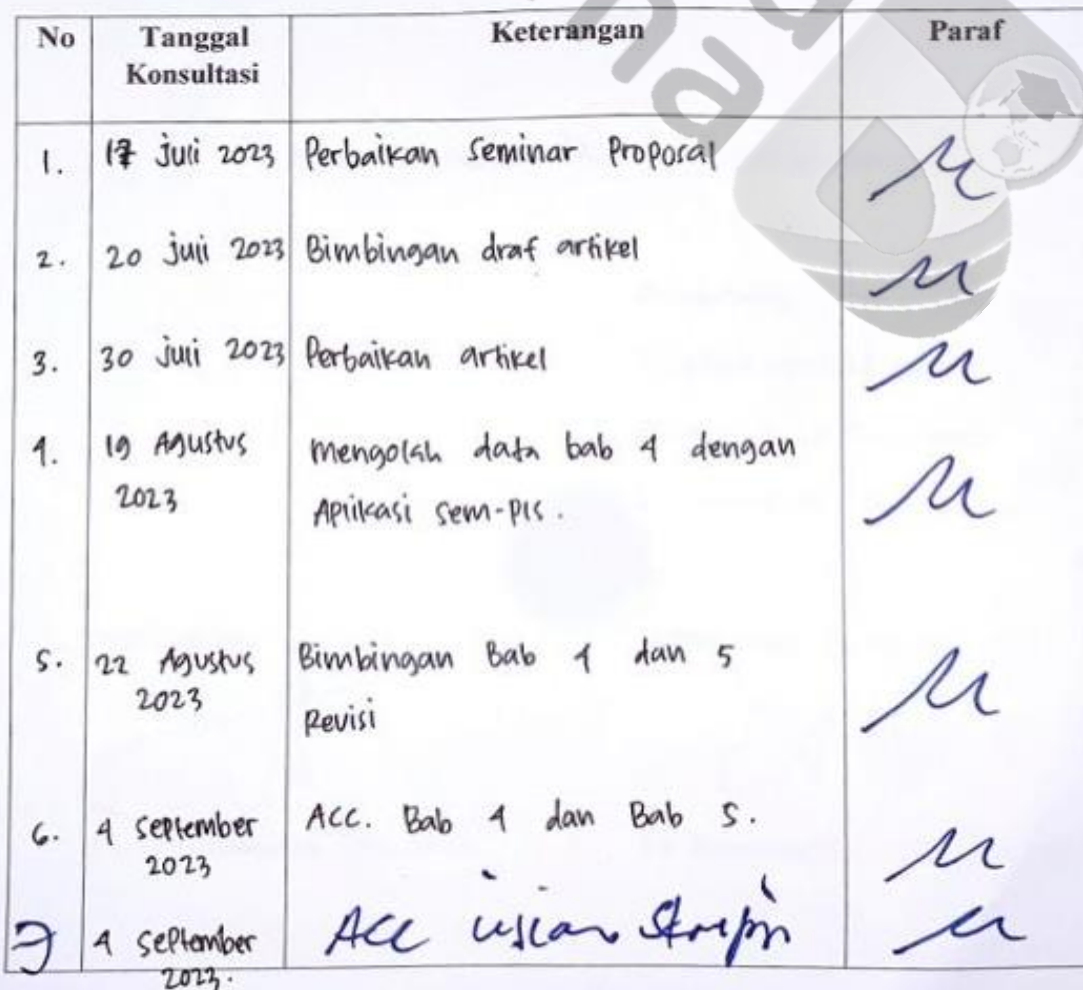 No Tanggal Konsultasi Keterangan Paraf
1. 17 Juli 2023 Perbaikan Seminar Proposal
2. 20 Juli 2023 Bimbingan draf artikel
3. 30 Juli 2023 Perbaikan artikel
4. 19 Agustus 2023 Mengolah data bab 4 dengan
Aplikasi Sem-Pls.
5. 22 Agustus 2023 Bimbingan Bab 4 dan 5
Revisi
6. 4 September 2023 ACC. Bab 4 dan Bab 5.
7 4 September 2023. ACC ujian Skripsi